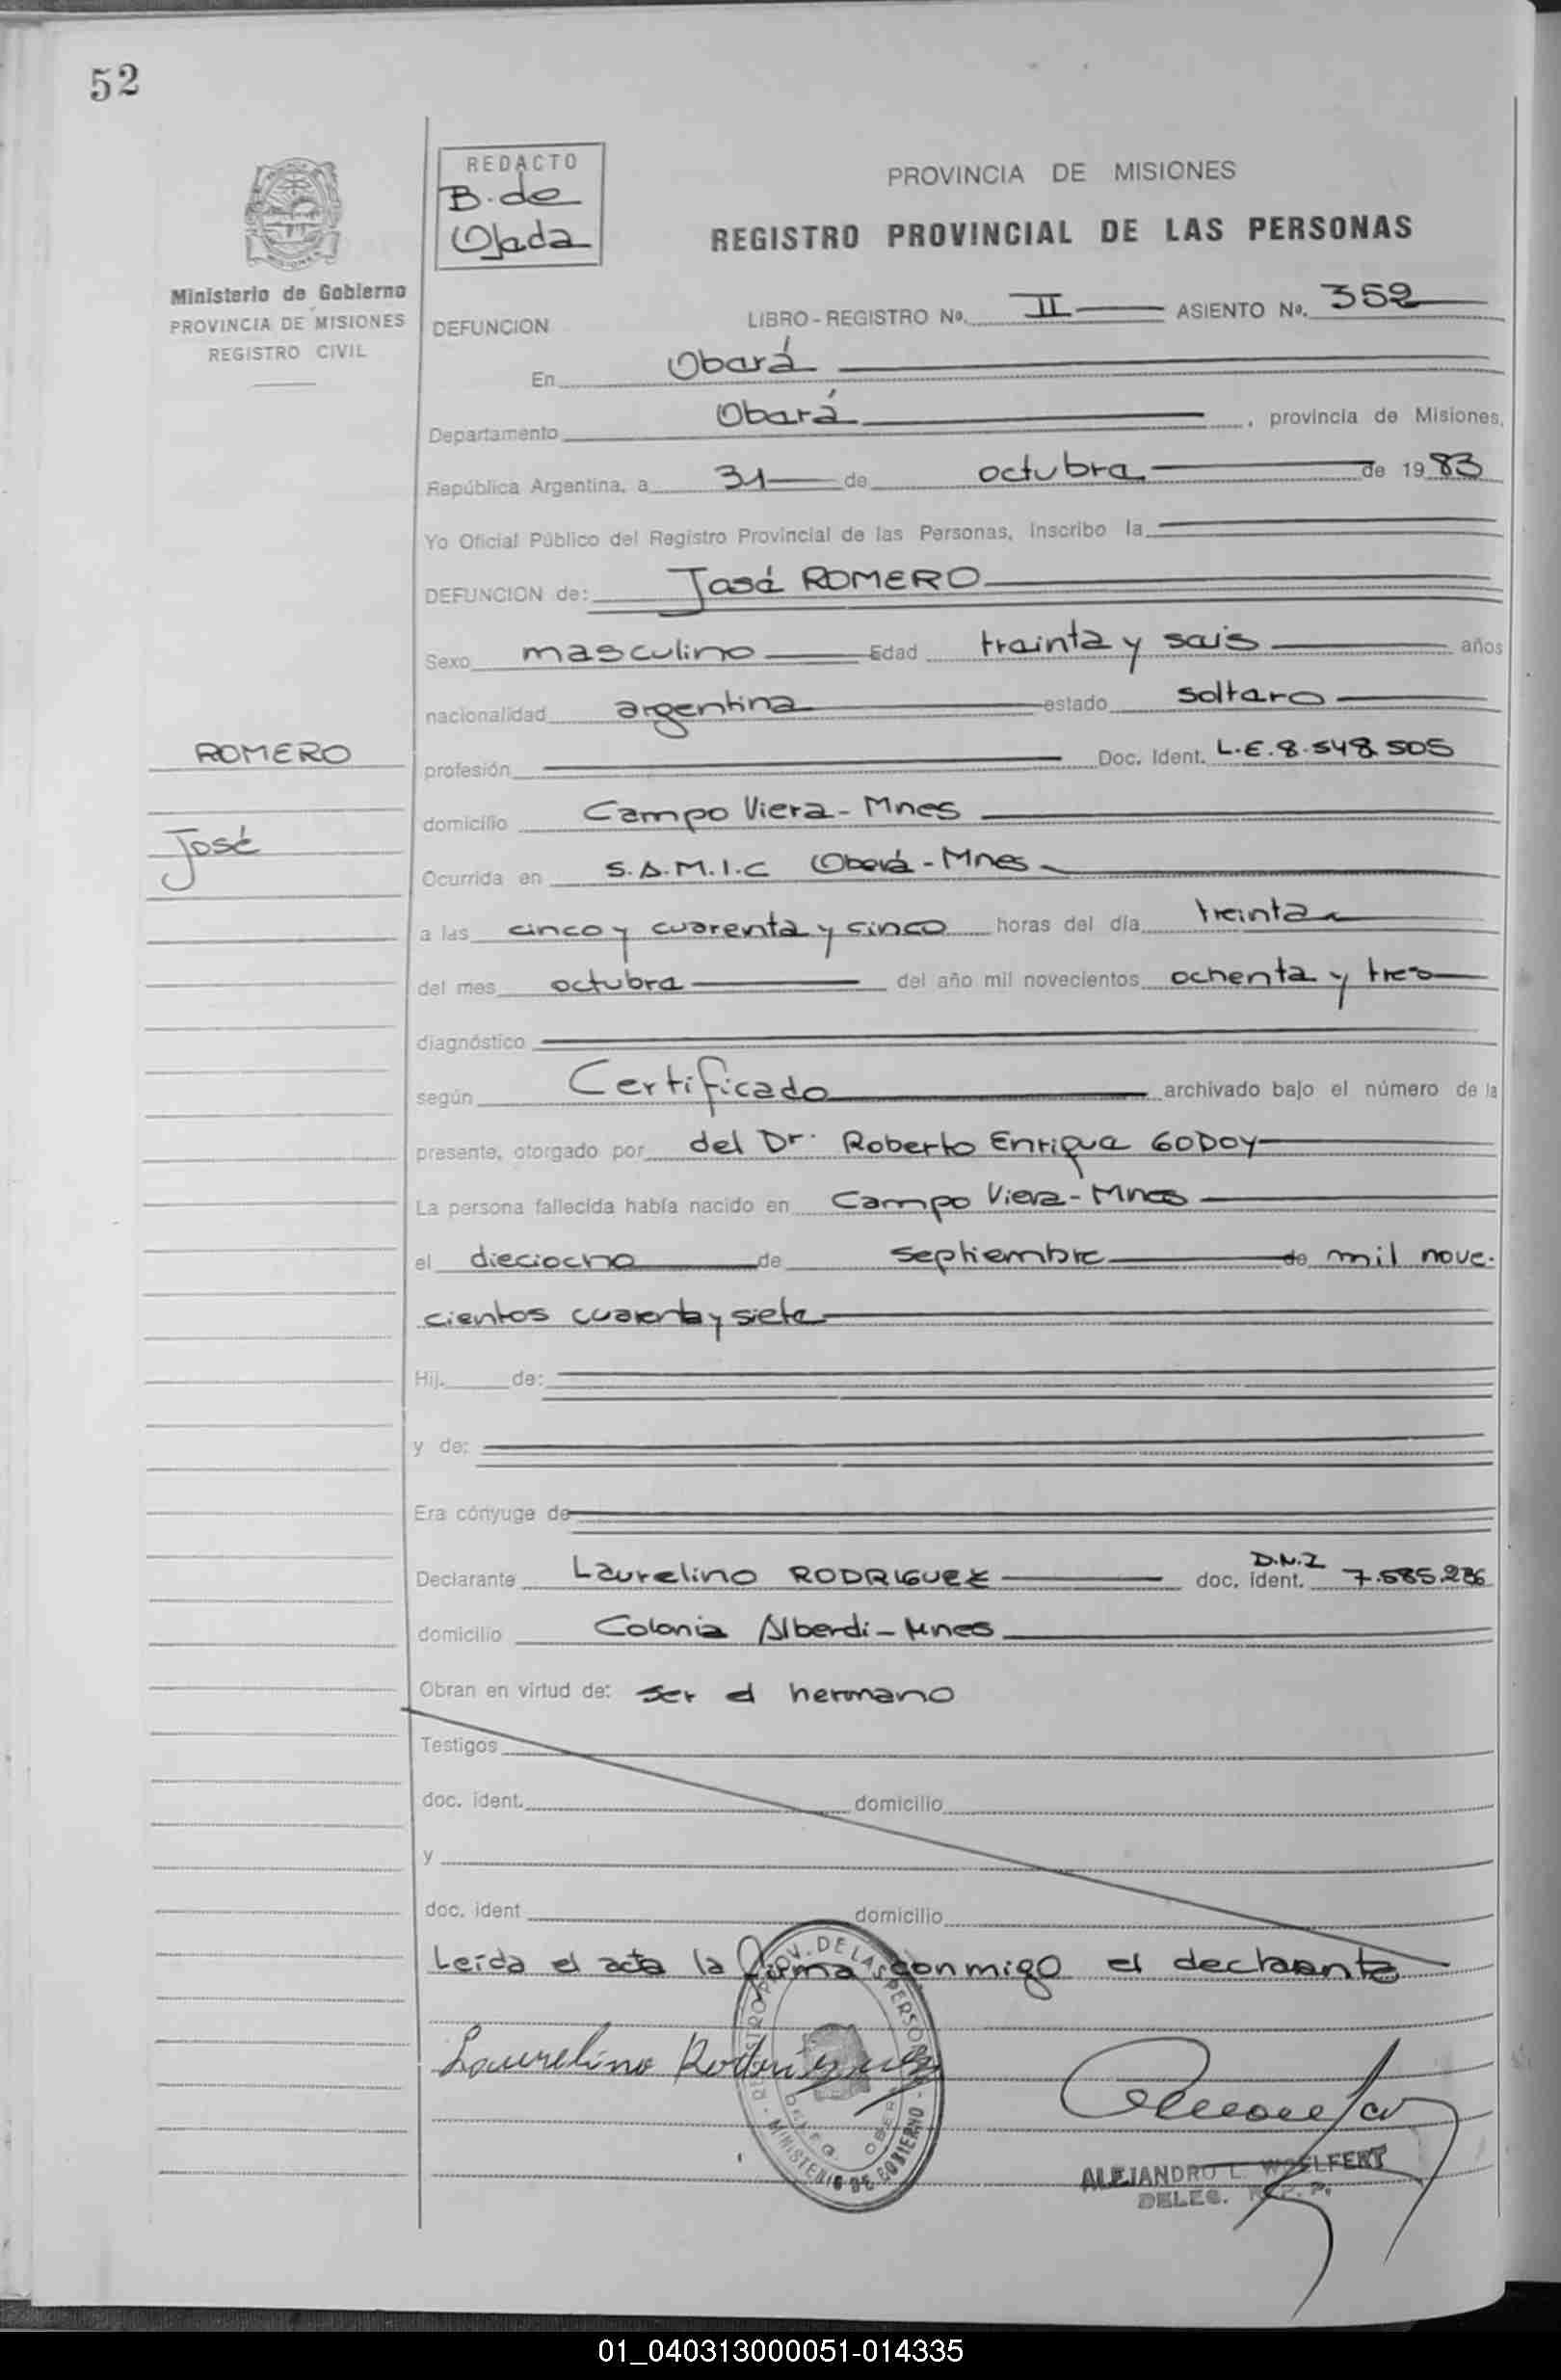 52
REDACTO
B. de
Ojeda
PROVINCIA DE MISIONES
REGISTRO PROVINCIAL DE LAS PERSONAS
Ministerio de Gobierno
PROVINCIA DE MISIONES
REGISTRO CIVIL
DEFUNCION LIBRO - REGISTRO Nº. II ASIENTO Nº. 352
En Oberá
Departamento Oberá, provincia de Misiones,
República Argentina, a 31 de octubre de 1983
Yo Oficial Público del Registro Provincial de las Personas, inscribo la
DEFUNCION de: José ROMERO
Sexo masculino Edad treinta y seis años
nacionalidad argentina estado soltero
ROMERO
profesión Doc. Ident. L.E. 8.548.505
domicilio Campo Viera - Mnes
José
Ocurrida en S.A.M.I.C Oberá - Mnes
a las cinco y cuarenta y cinco horas del día treinta
del mes octubre del año mil novecientos ochenta y tres
diagnóstico
según Certificado archivado bajo el número de la
presente, otorgado por del Dr. Roberto Enrique GODOY
La persona fallecida había nacido en Campo Viera - Mnes
el dieciocho de septiembre de mil nove-
cientos cuarenta y siete
Hij. de:
y de:
Era cónyuge de
Declarante Laurelino RODRIGUEZ doc. ident. D.N.I 7.585.286
domicilio Colonia Alberdi - Mnes
Obran en virtud de: ser el hermano
Testigos
doc. ident. domicilio
y
doc. ident domicilio
Leída el acta la firma conmigo el declarante
REGISTRO PROV. DE LAS PERSONAS - MINISTERIO DE GOBIERNO -
DELEG. OBERA
Laurelino Rodriguez
ALEJANDRO L. WOELFERT
DELEG. R. P. P.
01_040313000051-014335